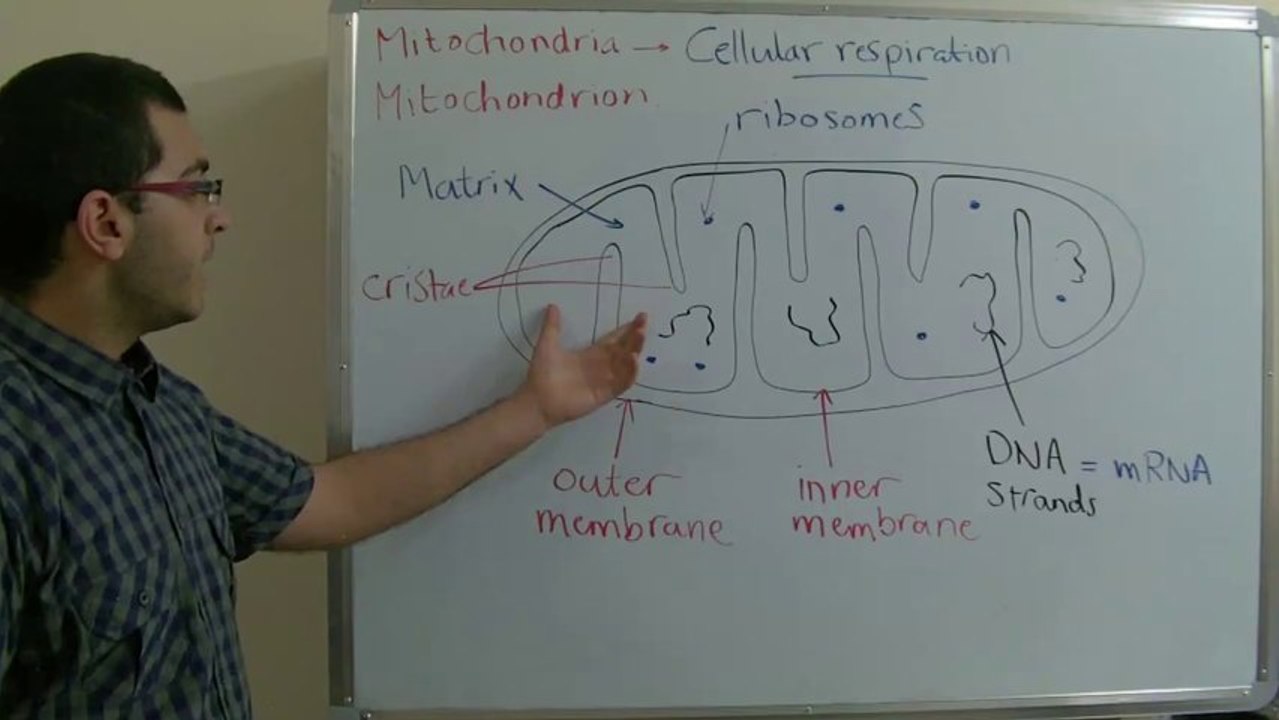 Mitochondria → Cellular respiration
Mitochondrion
ribosomes
Matrix
cristae
outer
membrane
inner
membrane
DNA = mRNA
strands